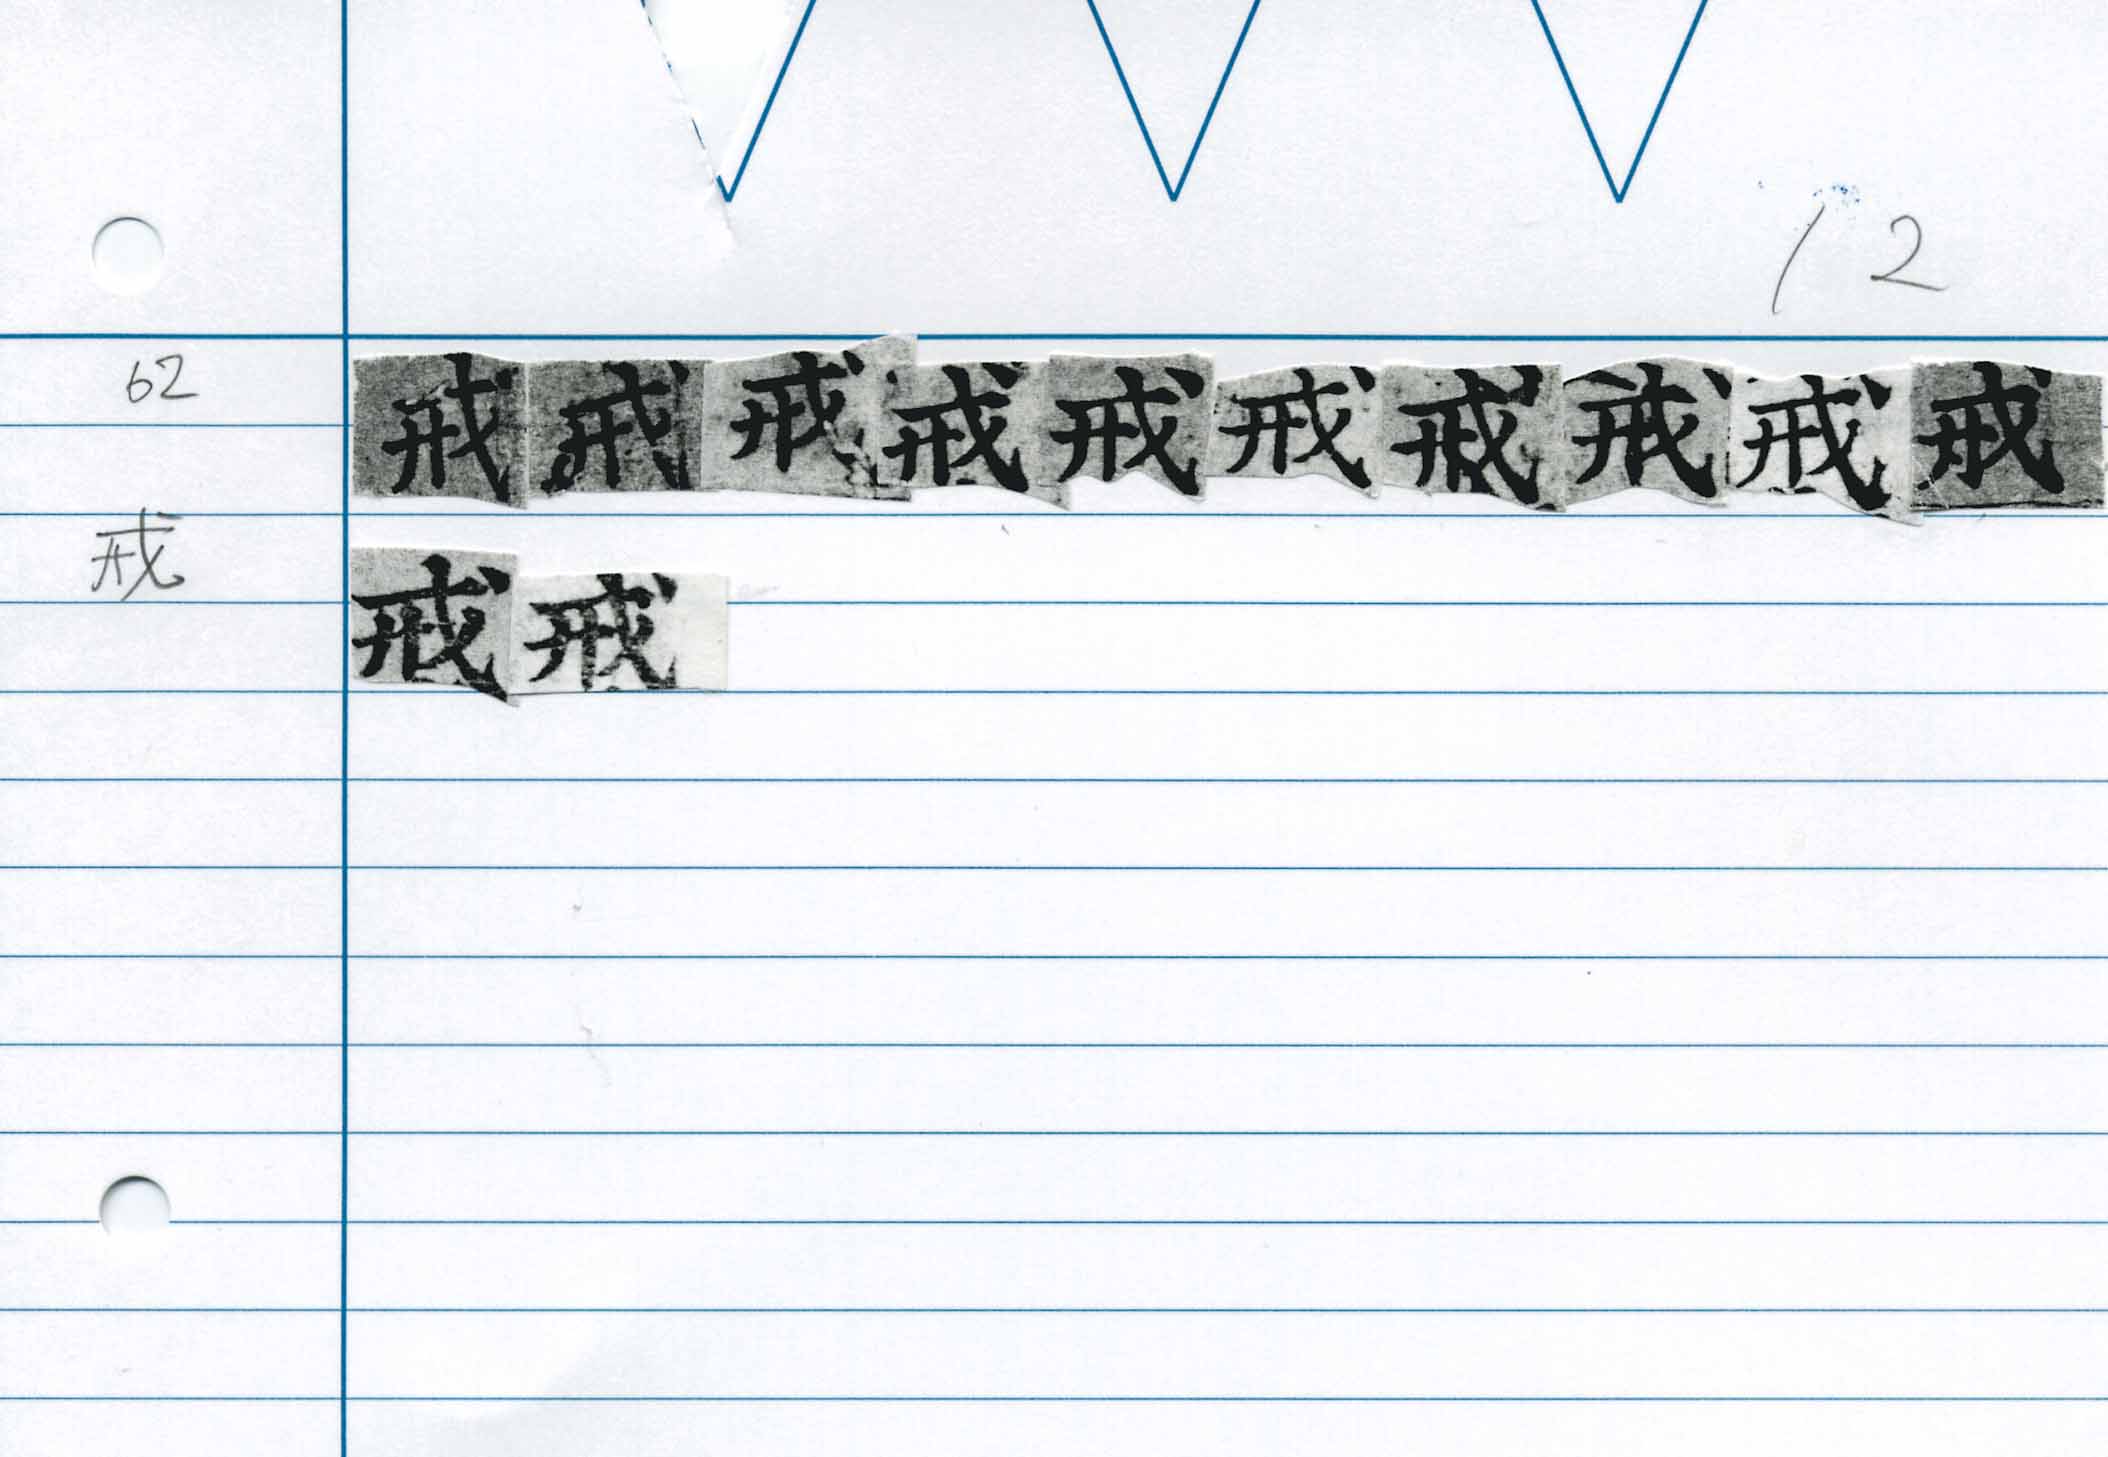 12
62
戒戒戒戒戒戒戒戒戒戒
戒
戒戒